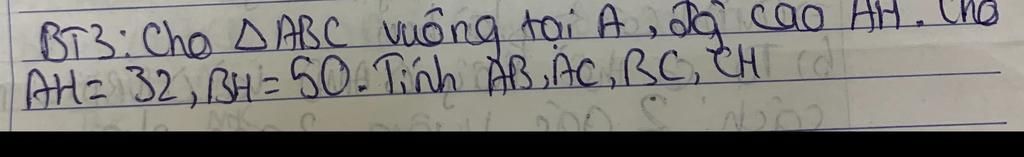 BT3: Cho △ABC vuông tại A, đg cao AH. Cho
AH = 32, BH = 50. Tính AB, AC, BC, CH